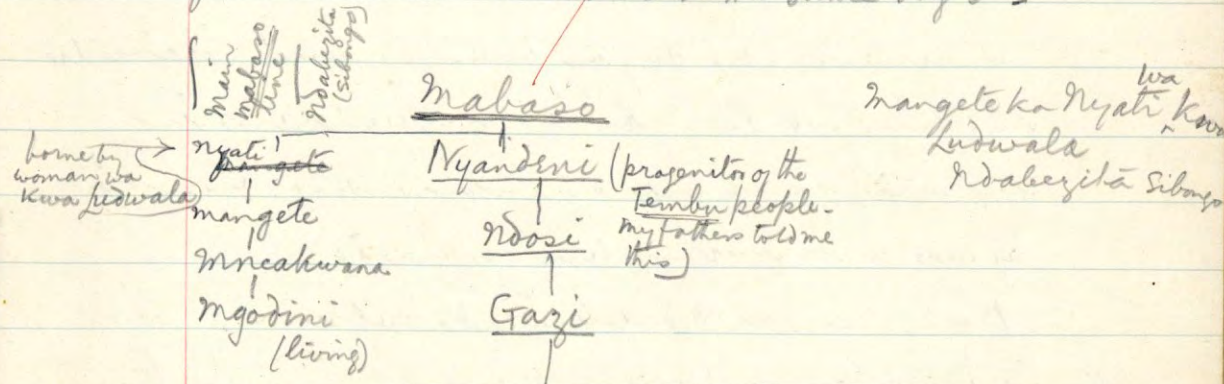 Main
Mabaso
line
Ndabezita
(sibongo)
Mabaso
Nyati
Mangete
borne by
woman wa
Kwa Ludwala
Mangete
Mncakwana
Mgodini
(living)
Nyandeni (progenitor of the
Tembu people -
my fathers told me
this)
Ndosi
Gazi
Mangete ka Nyati wa Kwa
Ludwala
Ndabezita Sibongo